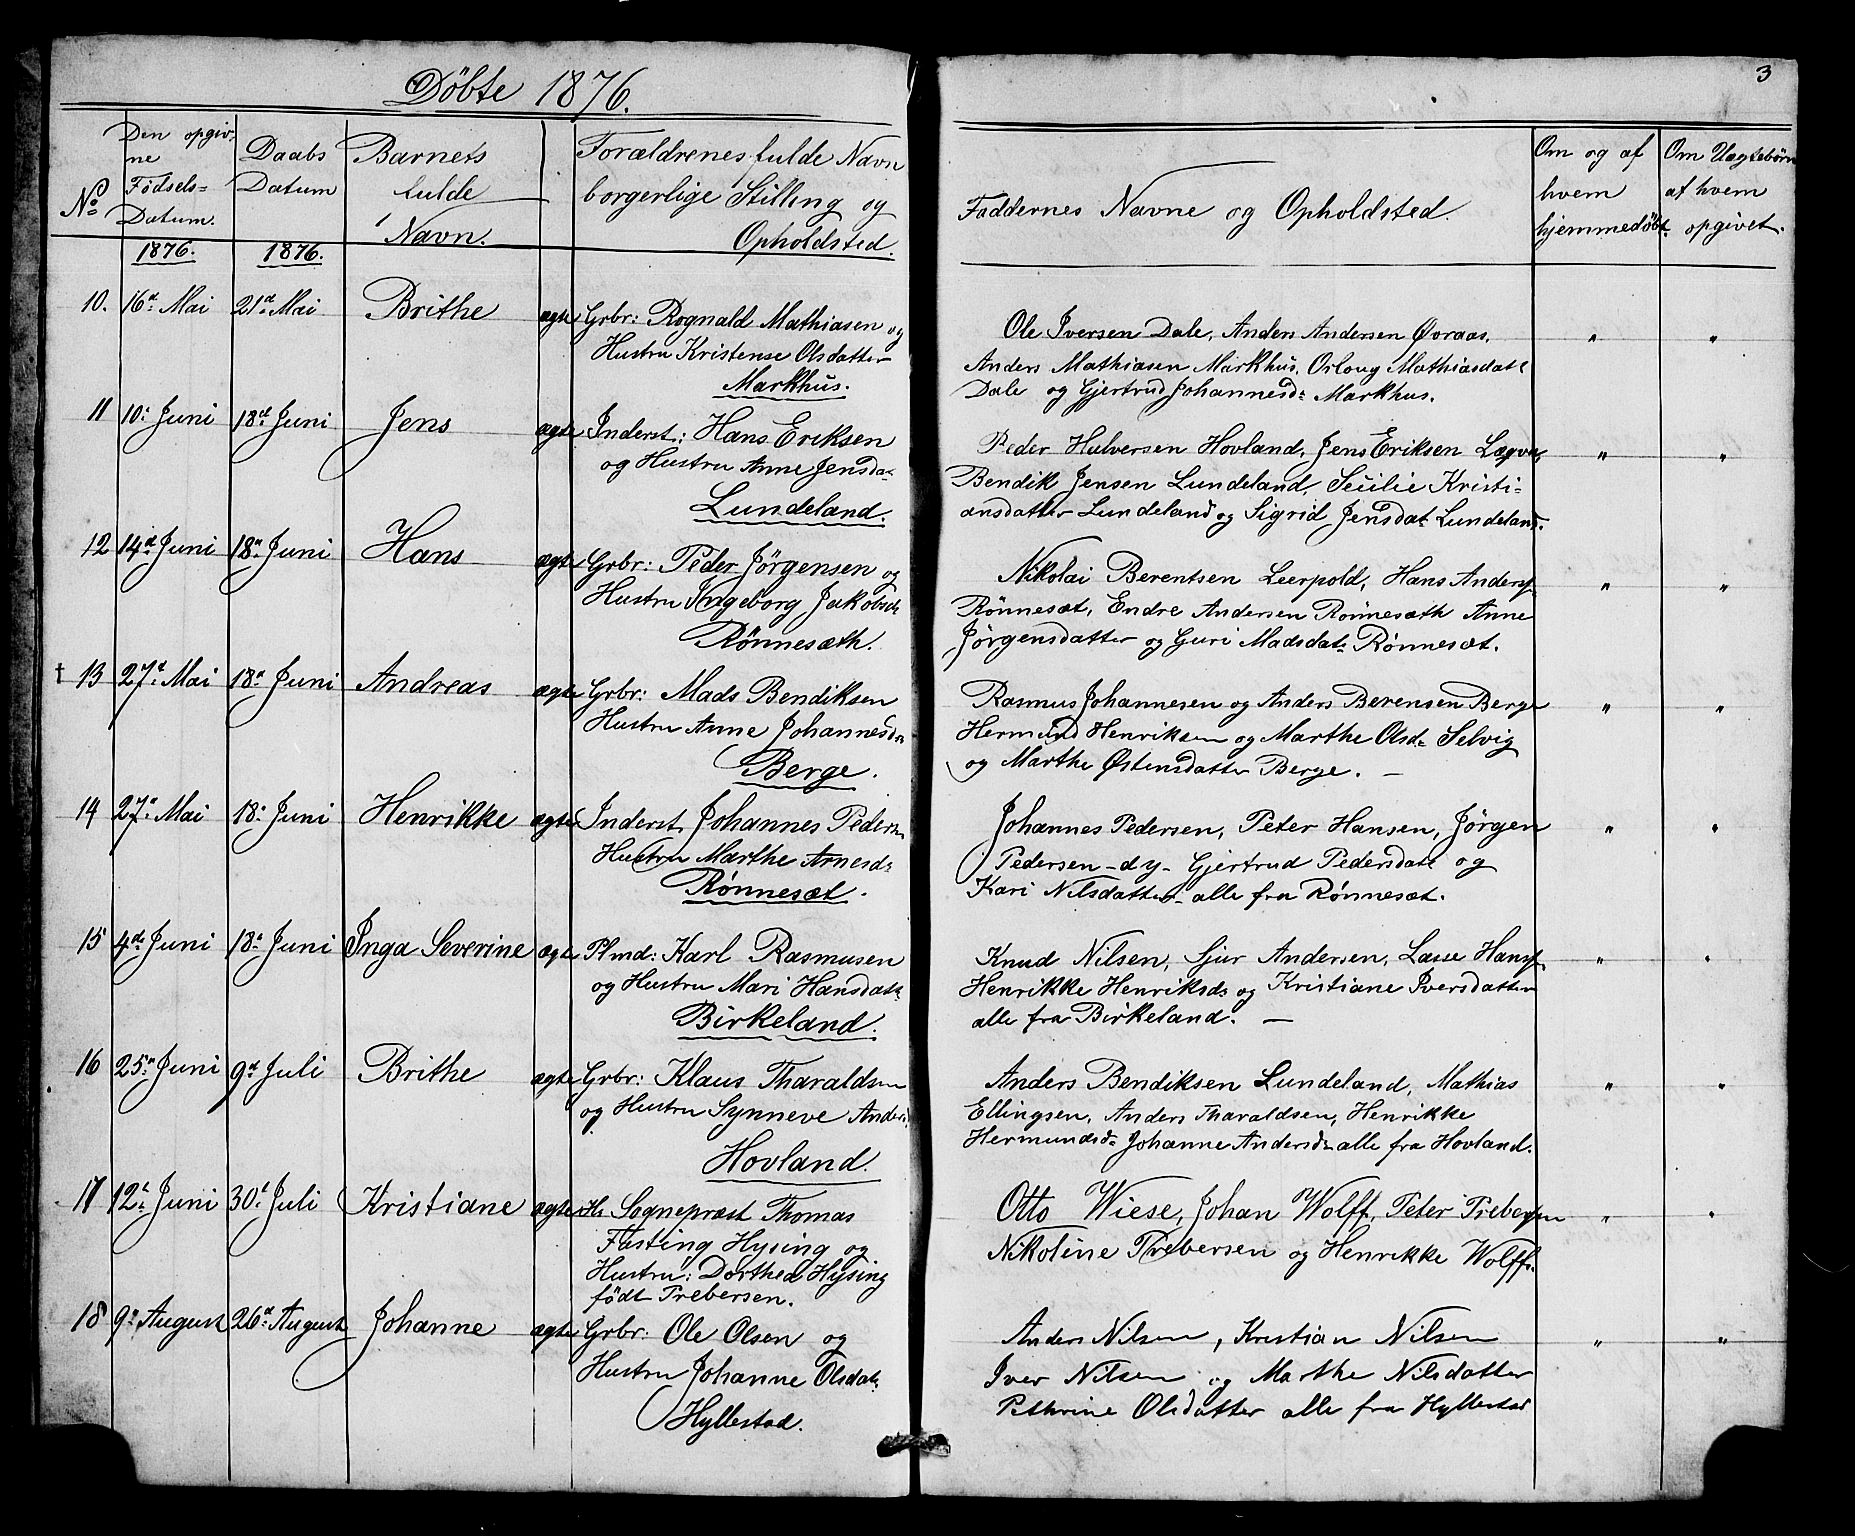 Döbte 1876.
3
No
Den opgiv-
ne
Födsels=
Datum.
Daabs
Datum
Barnets
fulde
Navn.
Forældrenes fulde Navn
borgerlige Stilling og
Opholdsted.
Faddernes Navne og Opholdsted.
Om og af
hvem
hjemmedöbt.
Om Uægtebörn
af hvem
opgivet.
1876. 1876.
10. 16de Mai 21de Mai Brithe ægte Grbr: Rognald Mathiasen og
Hustru Kristense Olsdatter
Markhus.
Ole Iversen Dale, Anders Andersen Øvraas, " "
Anders Mathiasen Markhus, Orloug Mathiasdatt
Dale og Gjertrud Johannesd: Markhus.
11 10: Juni 18de Juni Jens ægte Inderst: Hans Eriksen
og Hustru Anne Jensda
Lundeland.
Peder Halversen Hovland, Jens Eriksen " "
Bendik Jensen Lundeland, Secilie Kristi=
ansdatter Lundeland og Sigrid Jensdat Lundeland.
12 14de Juni 18: Juni Hans ægte Grbr: Peder Jörgensen og
Hustru Ingeborg Jakobsd:
Rönnesæth.
Nikolai Berentsen Leerpold, Hans Anders " "
Rönnesæt, Endre Andersen Rönnesæth Anne
Jörgensdatter og Guri Madsdat: Rønnesæt.
† 13 27de Mai 18: Juni Andreas ægte Grbr: Mads Bendiksen
Hustru Anne Johannesd
Berge.
Rasmus Johannesen og Anders Berensen Berge " "
Hermund Henriksen og Marthe Olsd: Selvig
og Marthe Østensdatter Berge. —
14 27: Mai 18: Juni Henrikke ægte Inderst, Johannes Peders
Hustru Marthe Arnesd:
Rønnesæt.
Johannes Pedersen, Peter Hansen, Jörgen " "
Pedersen - dy - Gjertrud Pedersdatt og
Kari Nilsdatter - alle fra Rønnesæt.
15 4de Juni 18: Juni Inga Severine ægte Plmd: Karl Rasmusen
og Hustru Mari Hansdat:
Birkeland.
Knud Nilsen, Sjur Andersen, Lasse Hans " "
Henrikke Henriksd: og Kristiane Iversdatter
alle fra Birkeland. —
16 25: Juni 9de Juli Brithe ægte Grbr: Klaus Tharaldsen
og Hustru Synneve Anders
Hovland.
Anders Bendiksen Lundeland, Mathias " "
Ellingsen, Anders Tharaldsen, Henrikke
Hermundsd: Johanne Andersd: alle fra Hovland.
17 12: Juni 30: Juli Kristiane ægte Hr Sognepræst Thomas
Fasting Hysing og
Hustru: Dorthea Hysing
födt Trebersen.
Otto Wiese, Johan Wolff, Peter Trebersen " "
Nikoline Trebersen og Henrikke Wolff.
18 9: August 26de August Johanne ægte Grbr: Ole Olsen og
Hustru Johanne Olsdat:
Hyllestad.
Anders Nilsen, Kristian Nilsen " "
Iver Nilsen og Marthe Nilsdatter
Pethrine Olsdatter alle fra Hyllestad